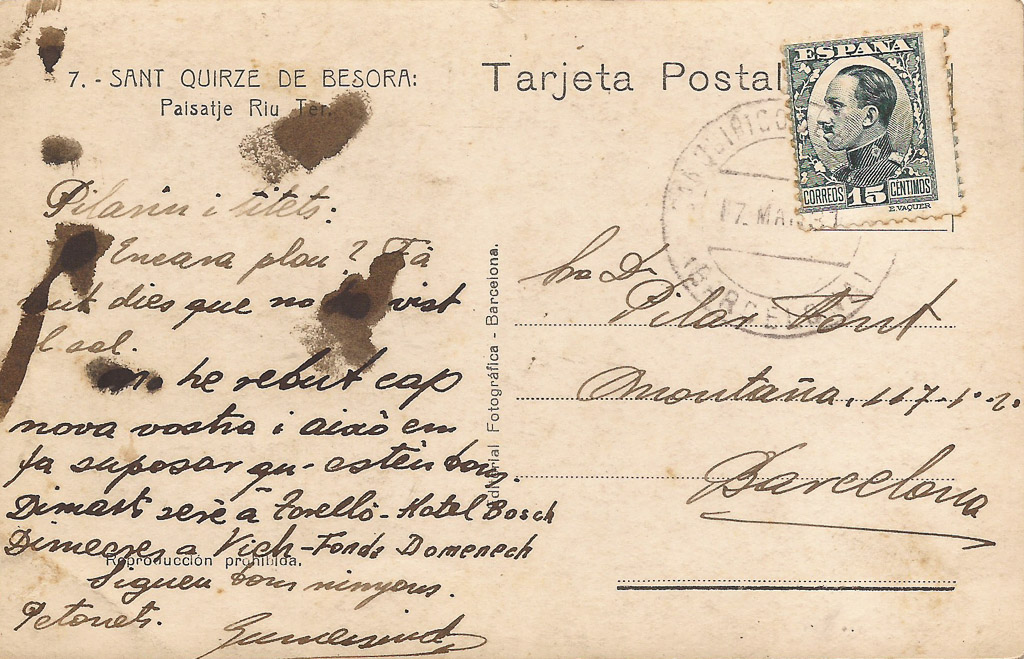 7. - SANT QUIRZE DE BESORA:
Paisatje Riu Ter.
Tarjeta Postal
ESPAÑA
CORREOS 15 CENTIMOS
E. VAQUER
17. MAR. 31
Pilarin i titets:
Encara plou? Fà
vuit dies que no vist
l sol.
no he rebut cap
nova vostra i aixó em
fa suposar qu- esteu bons.
Dimart seré á Torelló - Hotel Bosch
Dimecres a Vich - Fonda Domenech
Sigueu bons minyons.
Petonets.
Gumersind
Reproducción prohibida.
Editorial Fotográfica - Barcelona.
Sra Da
Pilar Font
Montaña, 117-1º-2ª
Barcelona